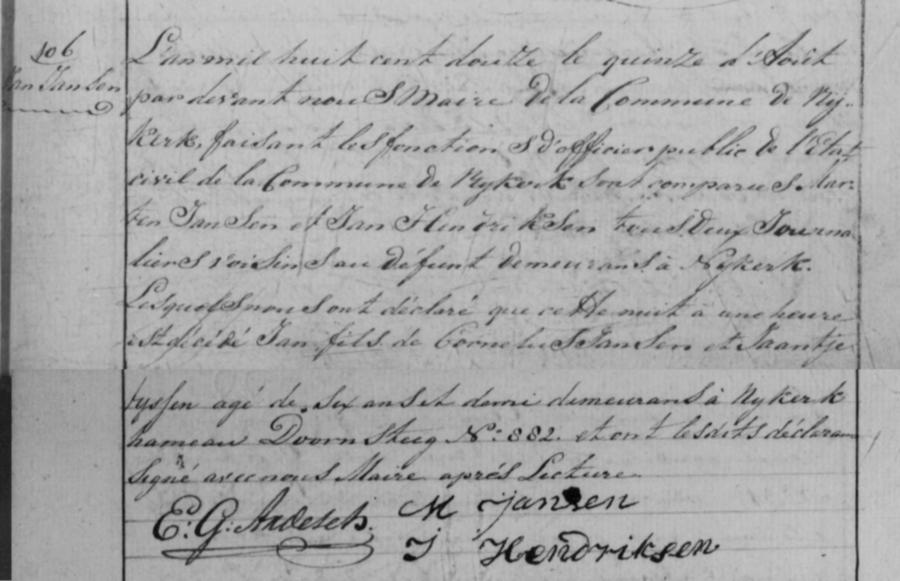 106
Jan Jansen
L'an mil huit cent douze le quinze d'Août
par devant nous Maire de la Commune de Nij-
kerk, faisant les fonctions d'officier public de l'Etat
civil de la Commune de Nykerk sont comparus Mar-
ten Jansen et Jan Hendriksen tous deux Journa
liers voisins au défunt demeurans à Nykerk.
Lesquels nous ont déclaré que cette nuit à une heure
est décédé Jan fils de Cornelus Jansen et Jaantje
tyssen agé de six ans et demi demeurans à Nykerk
hameau Doornsteeg No: 882. et ont lesdits déclarans
signé avec nous Maire aprés Lecture
E: G: Ardesch. M Jansen
J Hendriksen